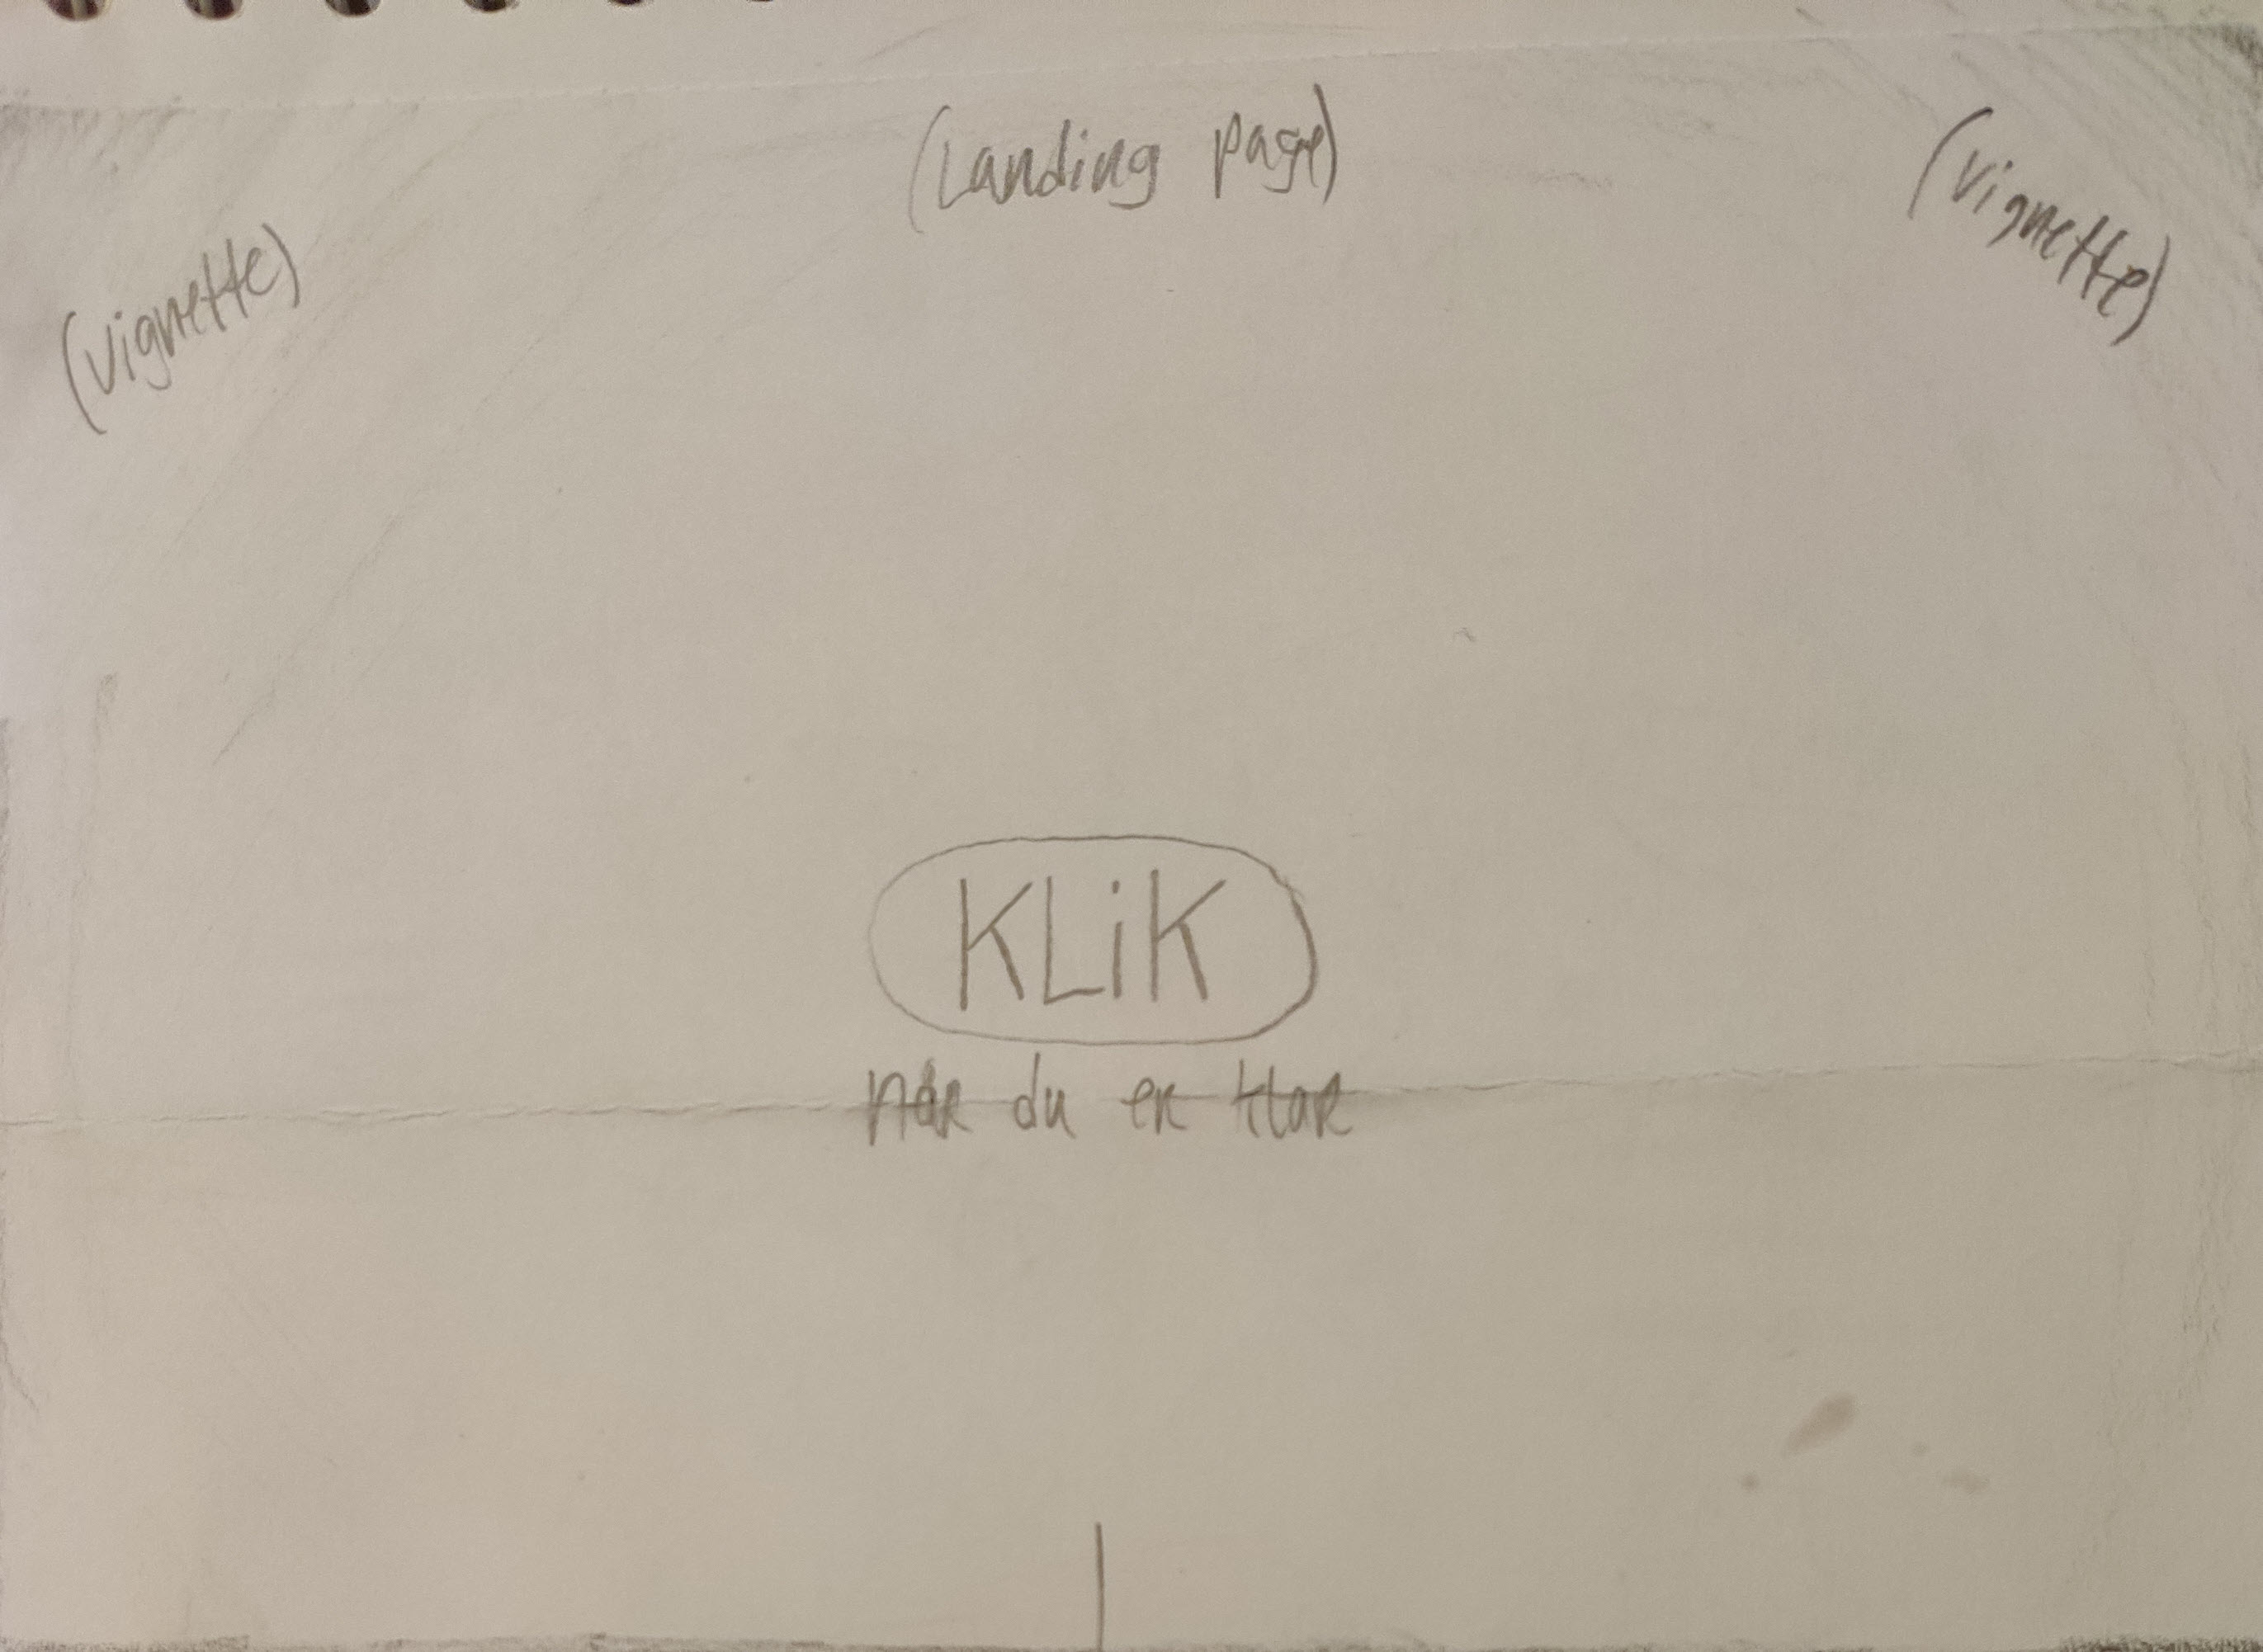 (Landing page)
(vignette)
(vignette)
KLiK
når du er klar